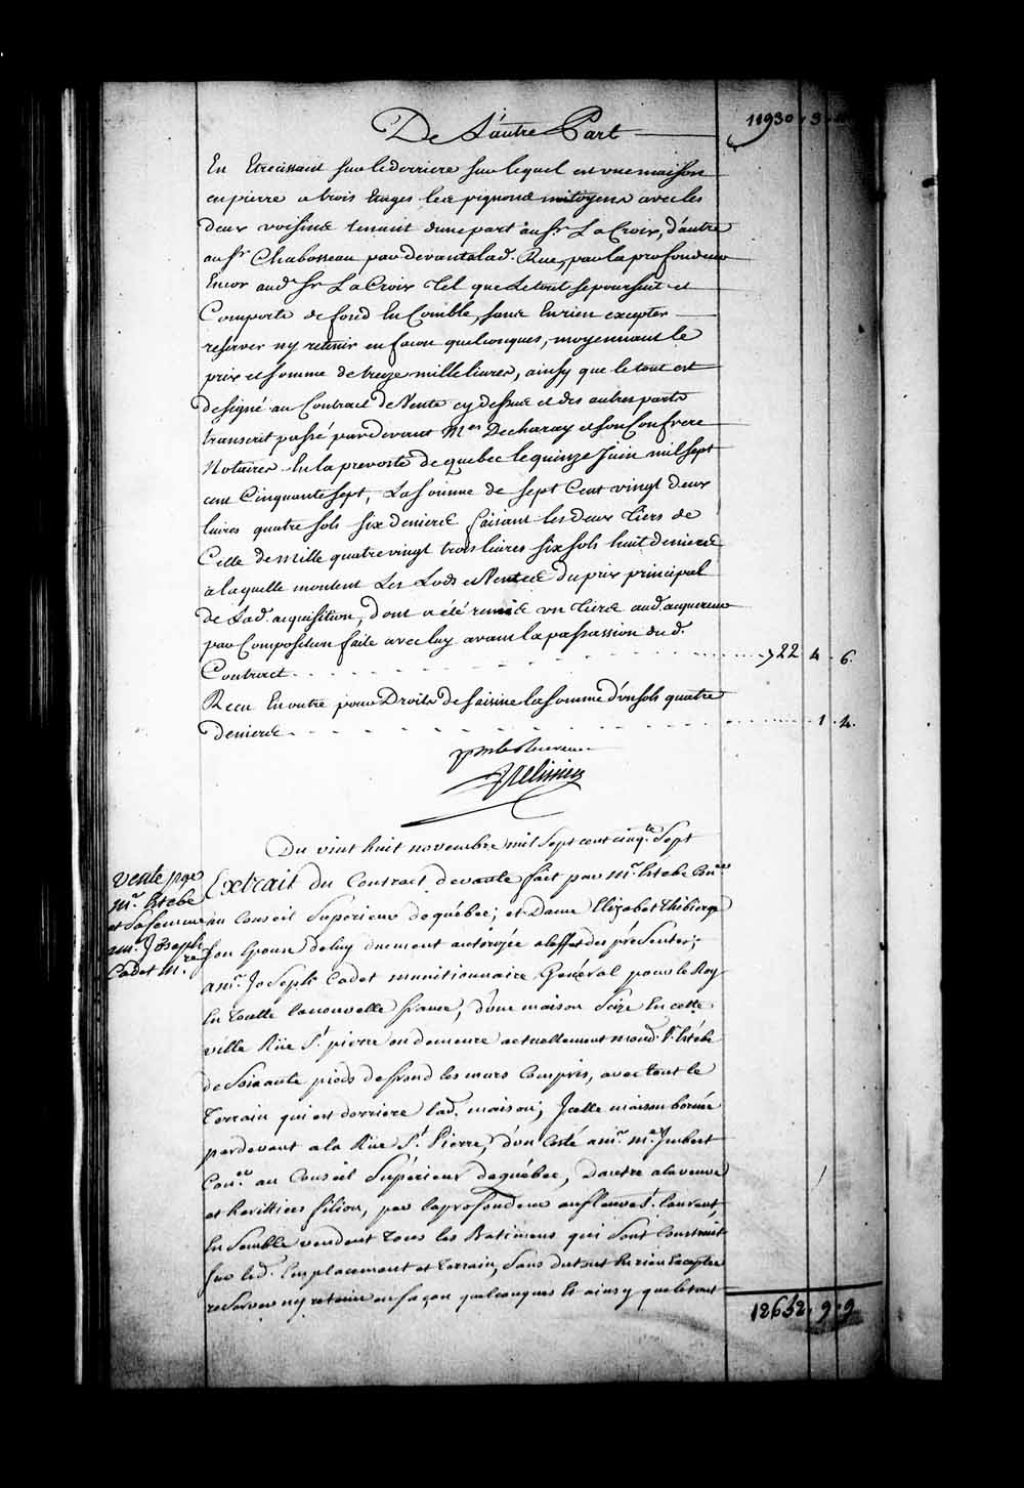 De L'autre Part 11930 . 3 .
En Etrecissant sur le derriere sur lequel est une maison
en pierre a trois Etages les pignons mitoyens avec les
deux voisins tenant d'une part au Sr. La Croix, d'autre
au Sr Chabosseau par devant a lad. Rue, par la profondeur
Encor aud. Sr La Croix tel que le tout se poursuit et
Comporte de fond En Comble, sans En rien excepter
reserver ny retenir en facon quelconques, moyennant le
prix et somme de treize mille livres, ainsy que le tout est
designé au Contract de Vente cy dessus et des autres parts
transcrit passé pardevant Mes Decharay et son Confrere
Notaires En la prevosté de quebec le quinze Juin mil sept
cent Cinquante sept, La somme de sept Cent vingt deux
livres quatre sols six deniers faisant les deux tiers de
Celle de mille quatre vingt trois livres six sols huit deniers
a laquelle montent Les Lods et Ventes du prix principal
de Lad. acquisition, dont a été remis un tiers aud. acquereur
par Composition faite avec luy avant la passassion dud.
Contract 722 4 . 6.
Recu En outre pour Droits de saisine la somme d'un sols quatre
deniers 1 . 4.
Pelissier
Du vint huit novembre mil Sept cent cinq.te Sept
vente par
mr. Estebe
et Sa femme
a mr. Joseph
Cadet
Extrait du Contract de vante fait par Mr. Estebe Con.er
au Conseil Superieur de québec; et Dame Elizabet Thibierge
son Epouse de luy duement autorizée a leffet des présentes;
a mr. Joseph Cadet munitionnaire Général pour le Roy
En toutte la nouvelle france, d'une maison Size En cette
ville Rüe St. pierre ou demeure actuellement mond. Sr. Estebe
de Soixante pieds de frond les murs Compris, avec tout le
Terrain qui est derriere lad. maison; Icelle maison bornée
pardevant a la Rüe St. Pierre, d'un Costé a mr. Imbert
Con.er au Conseil Supérieur de québec, d'autre a la veuve
et heritiers filion, par la profondeur au fleuve St. laurent,
En Semble vendent tous les Batimens qui sont Construit
sur led. Emplacement et terrain, Sans du tout En rien Excepter
reserver ny retenir en façon quelconques et ainsy que le tout
12652 . 9 . 9